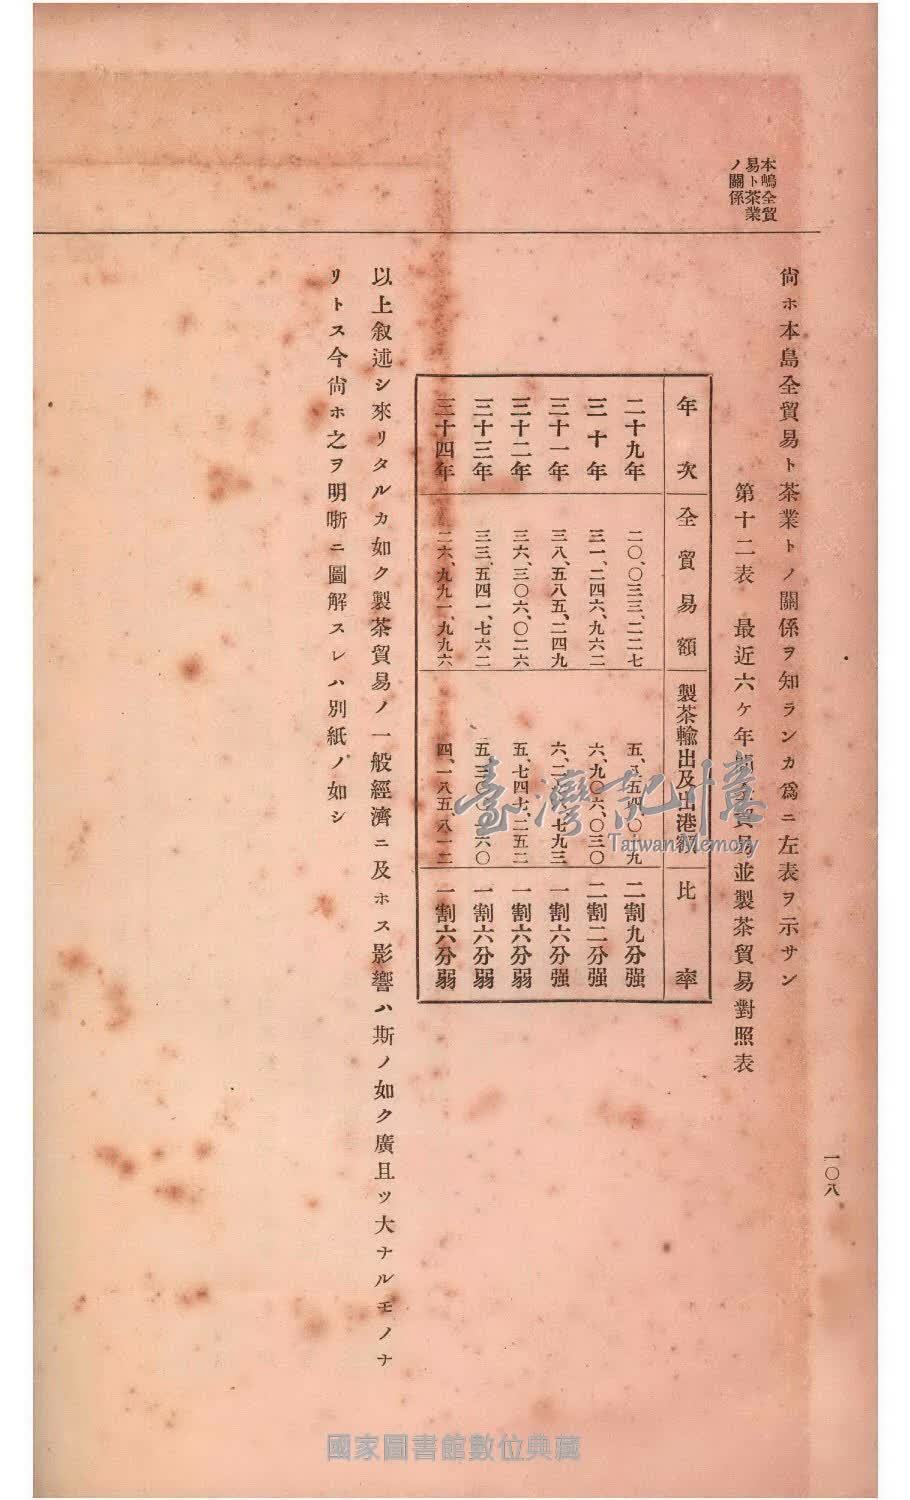 本嶋全貿
易ト茶業
ノ關係
尙ホ本島全貿易ト茶業トノ關係ヲ知ランカ爲ニ左表ヲ示サン
第十二表 最近六ケ年間 貿易並製茶貿易對照表
年次 全貿易額 製茶輸出及出港額 比率
二十九年 二〇、〇三三、二二七 五、八五四、〇 九 二割九分强
三十年 三一、二四六、九六二 六、九〇六、〇三〇 二割二分强
三十一年 三八、五八五、二四九 六、二 七九三 一割六分强
三十二年 三六、三〇六、〇二六 五、七四七、二五二 一割六分弱
三十三年 三三、五四一、七六二 五、三〇 六〇 一割六分弱
三十四年 二六、九九一、九九六 四、一八五、八一二 一割六分弱
以上叙述シ來リタルカ如ク製茶貿易ノ一般經濟ニ及ホス影響ハ斯ノ如ク廣且ツ大ナルモノナ
リトス今尙ホ之ヲ明晣ニ圖解スレハ別紙ノ如シ
一〇八
臺灣記憶
Taiwan Memory
國家圖書館數位典藏